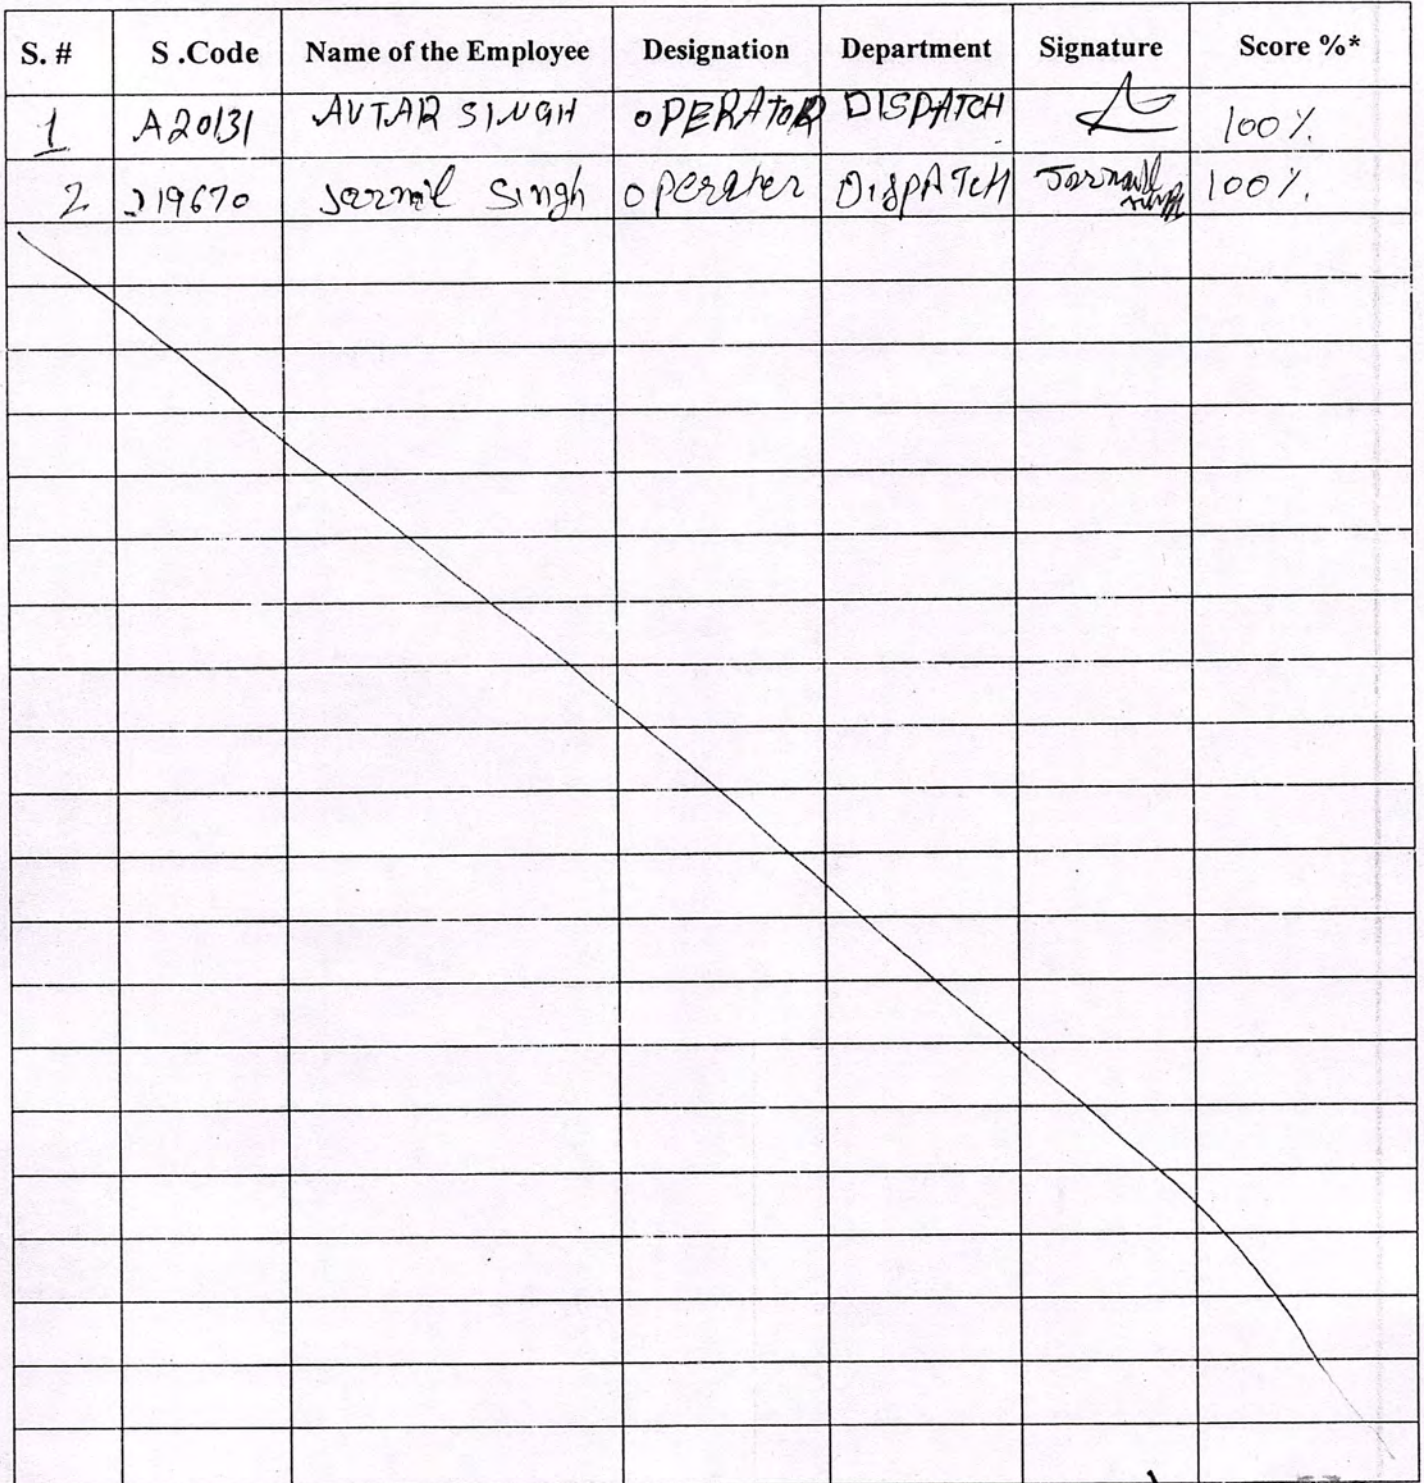 S. # S .Code Name of the Employee Designation Department Signature Score %*
1 A20131 AVTAR SINGH OPERATOR DISPATCH 100%
2 219670 Jarnail Singh operater DISPATCH Jarnail Singh 100%